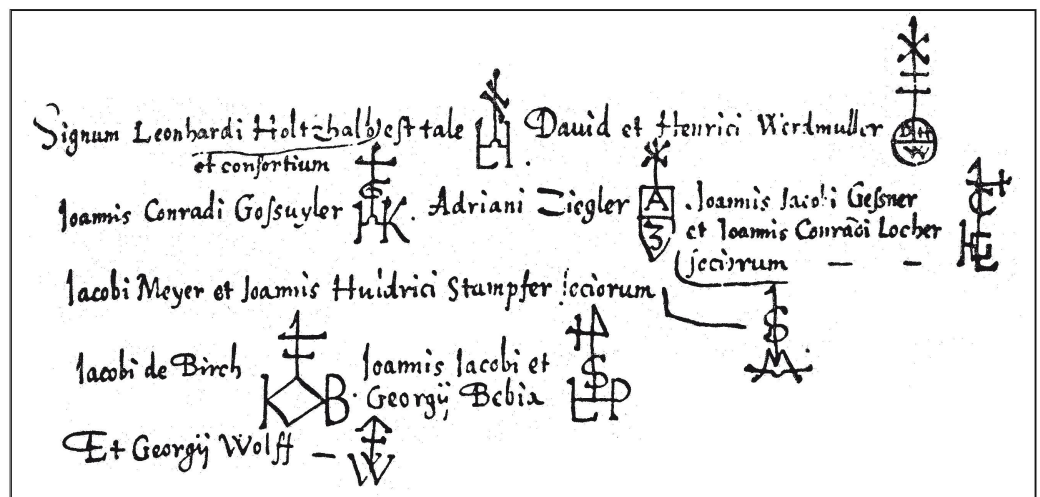 Signum Leonhardi Holtzhalb est tale David et Henrici Werdmuller
et consortium
Ioannis Conradi Gossuyler Adriani Ziegler Ioannis Iacobi Gessner
et Ioannis Conradi Locher
sociorum
Iacobi Meyer et Ioannis Huldrici Stampfer sociorum
Iacobi de Birch Ioannis Iacobi et
Georgij
Et Georgij Wolff